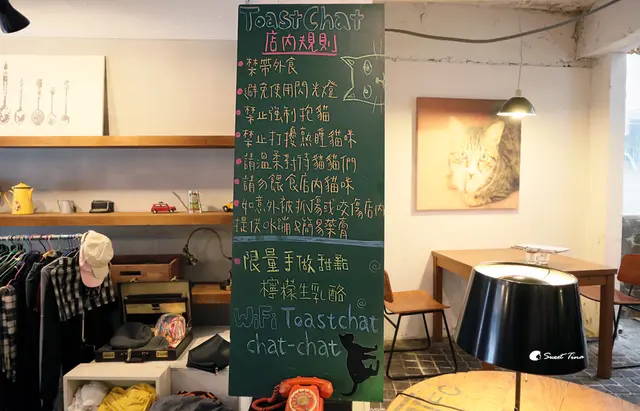 ToastChat
店內規則
禁帶外食
避免使用閃光燈
禁止強制抱貓
禁止打擾熟睡貓咪
請溫柔對待貓貓們
請勿餵食店內貓咪
如意外被抓傷或咬傷店內
提供OK繃&簡易藥膏
限量手做甜點
檸檬生乳酪
WiFi Toastchat
chat-chat
Sweet Tina